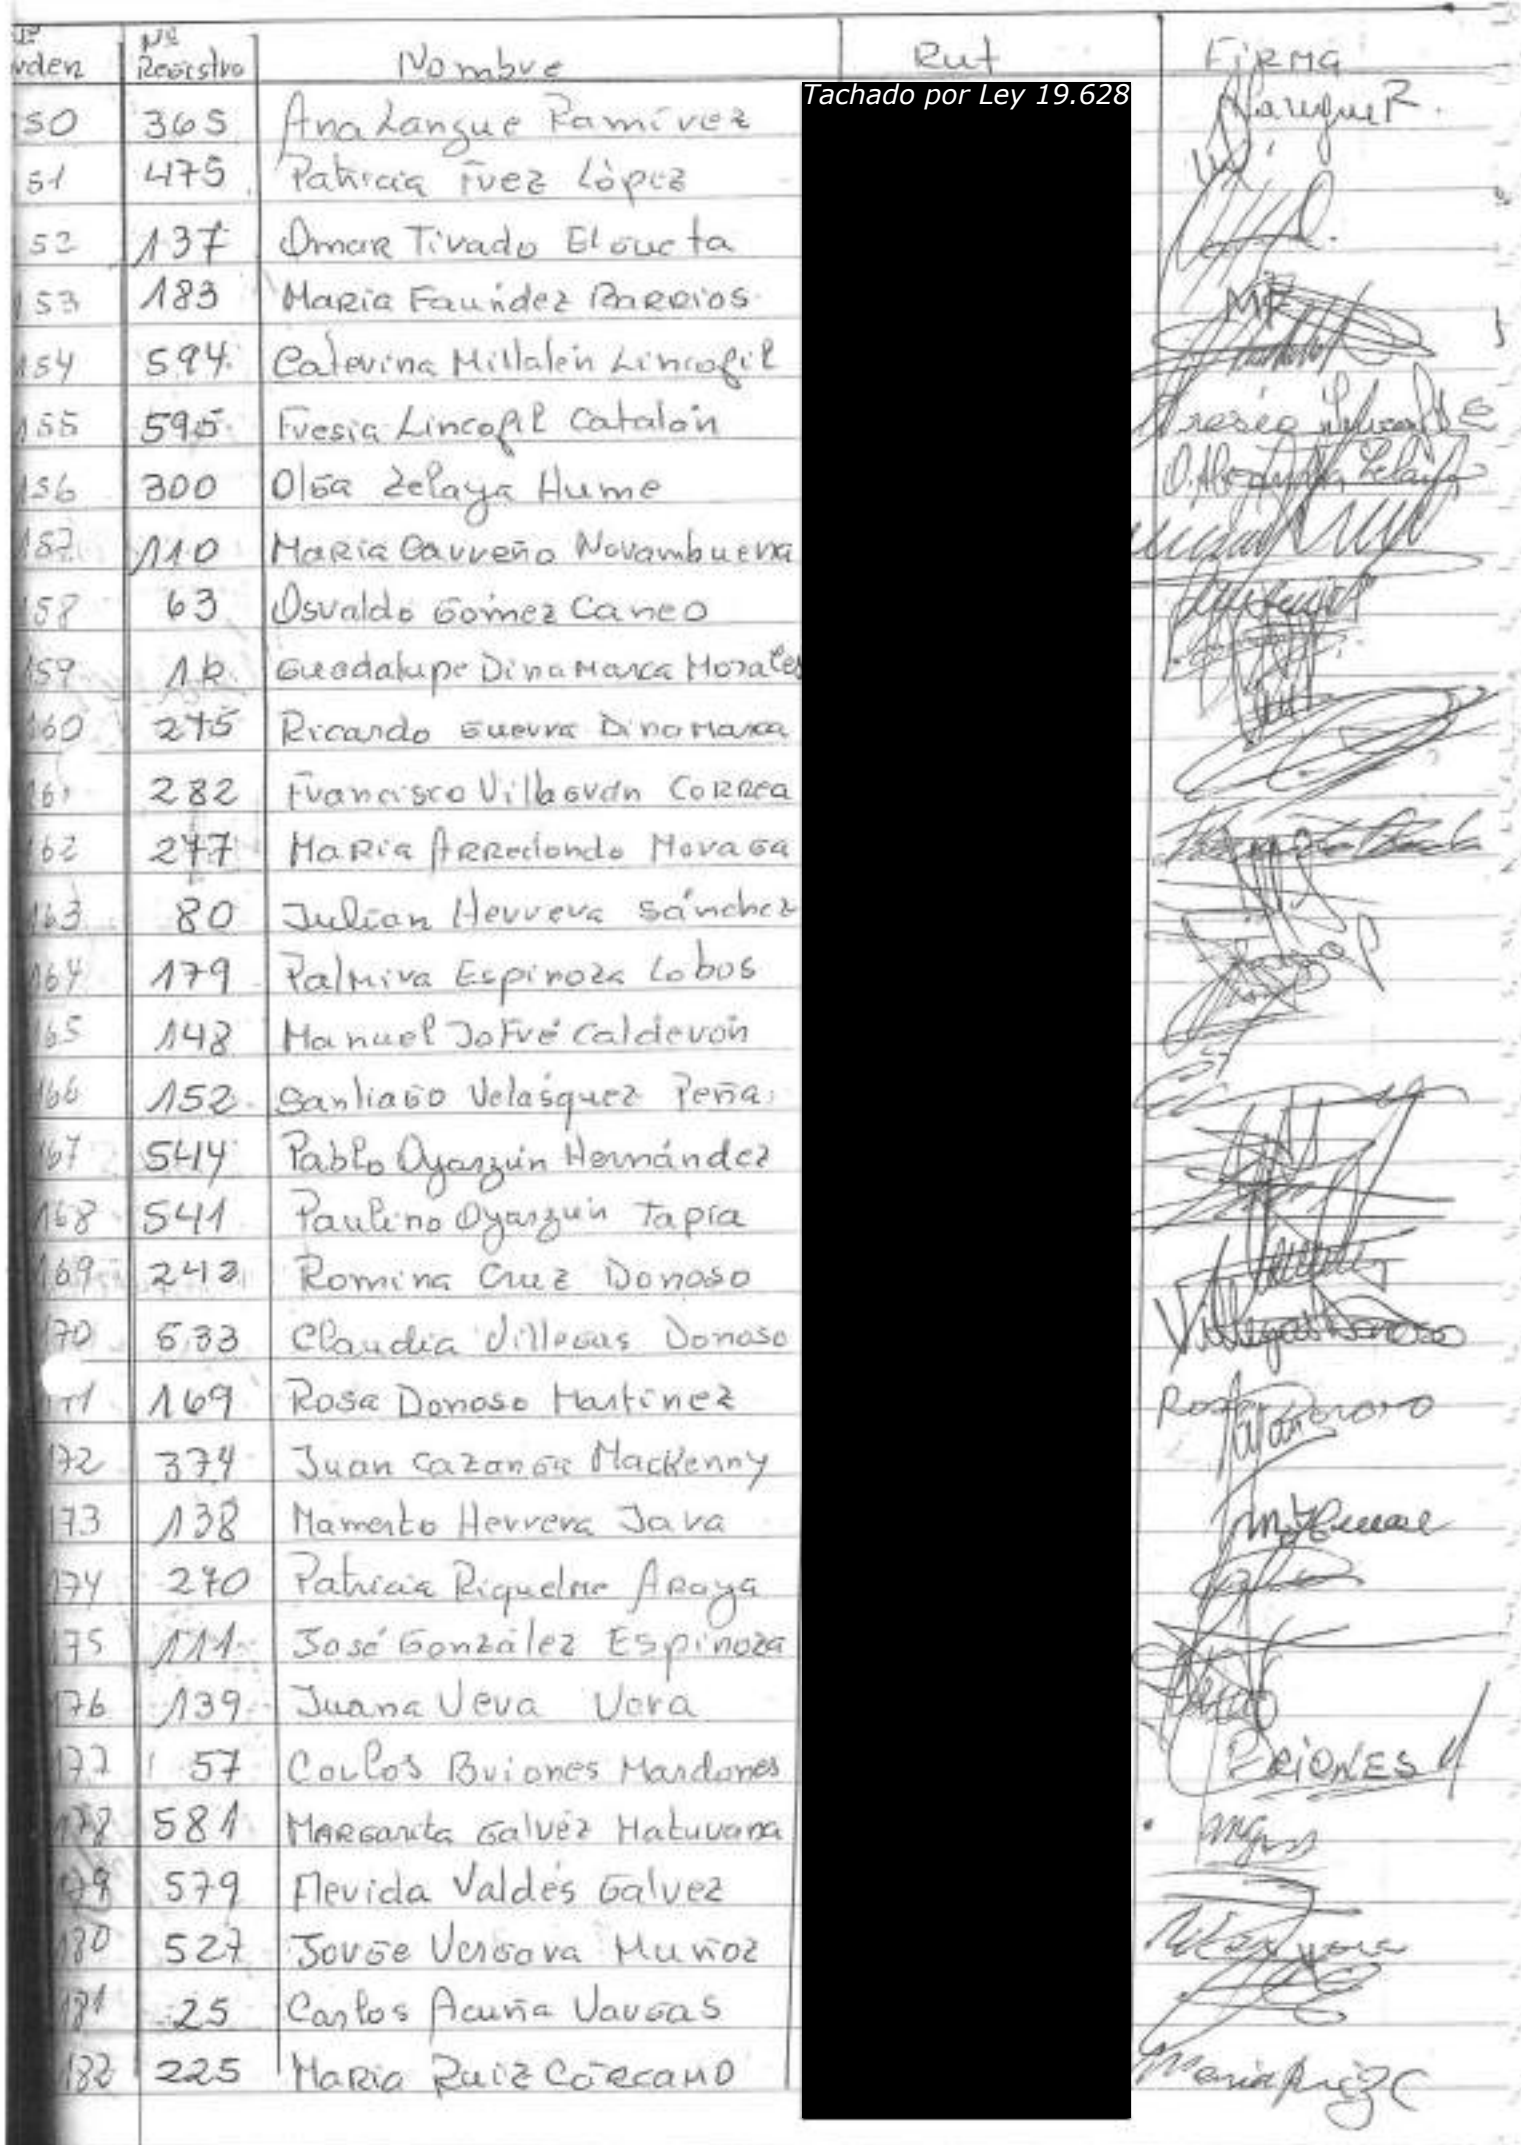 Nº Registro Nombre Rut Firma
Tachado por Ley 19.628
50 365 Ana Langue Ramirez
51 475 Patricia Irez López
52 137 Omar Tirado Elgueta
53 183 Maria Faúndez Barrios
154 594 Caterina Millalén Lincofil
155 595 Fresia Lincofil Catalón
156 300 Olga Zelaya Hume
157 110 Maria Carreño Norambuena
158 63 Osvaldo Gómez Caneo
159 Guadalupe Dinamarca Morales
160 275 Ricardo Guerra Dinamarca
161 282 Francisco Villagrán Correa
162 277 Maria Arredondo Moraga
163 80 Julian Herrera Sánchez
164 179 Palmira Espinoza Lobos
165 148 Manuel Jofré Calderón
166 152 Santiago Velásquez Peña
167 544 Pablo Oyarzún Hernández
168 541 Paulino Oyarzún Tapia
169 243 Romina Cruz Donoso
170 533 Claudia Villegas Donoso Villegas Donoso
171 169 Rosa Donoso Martinez Rosa Donoso
172 374 Juan Cazanga Mackenny
173 138 Mamerto Herrera Jara
174 270 Patricia Riquelme Araya
175 111 José González Espinoza
176 139 Juana Vera Vera
177 57 Carlos Briones Mardones BRIONES M
178 581 Margarita Galvéz Maturana
179 579 Mevida Valdés Galvez
180 527 Jorge Vergara Muñoz
181 25 Carlos Acuña Vargas
182 225 Maria Ruiz Cárcamo Maria Ruiz C